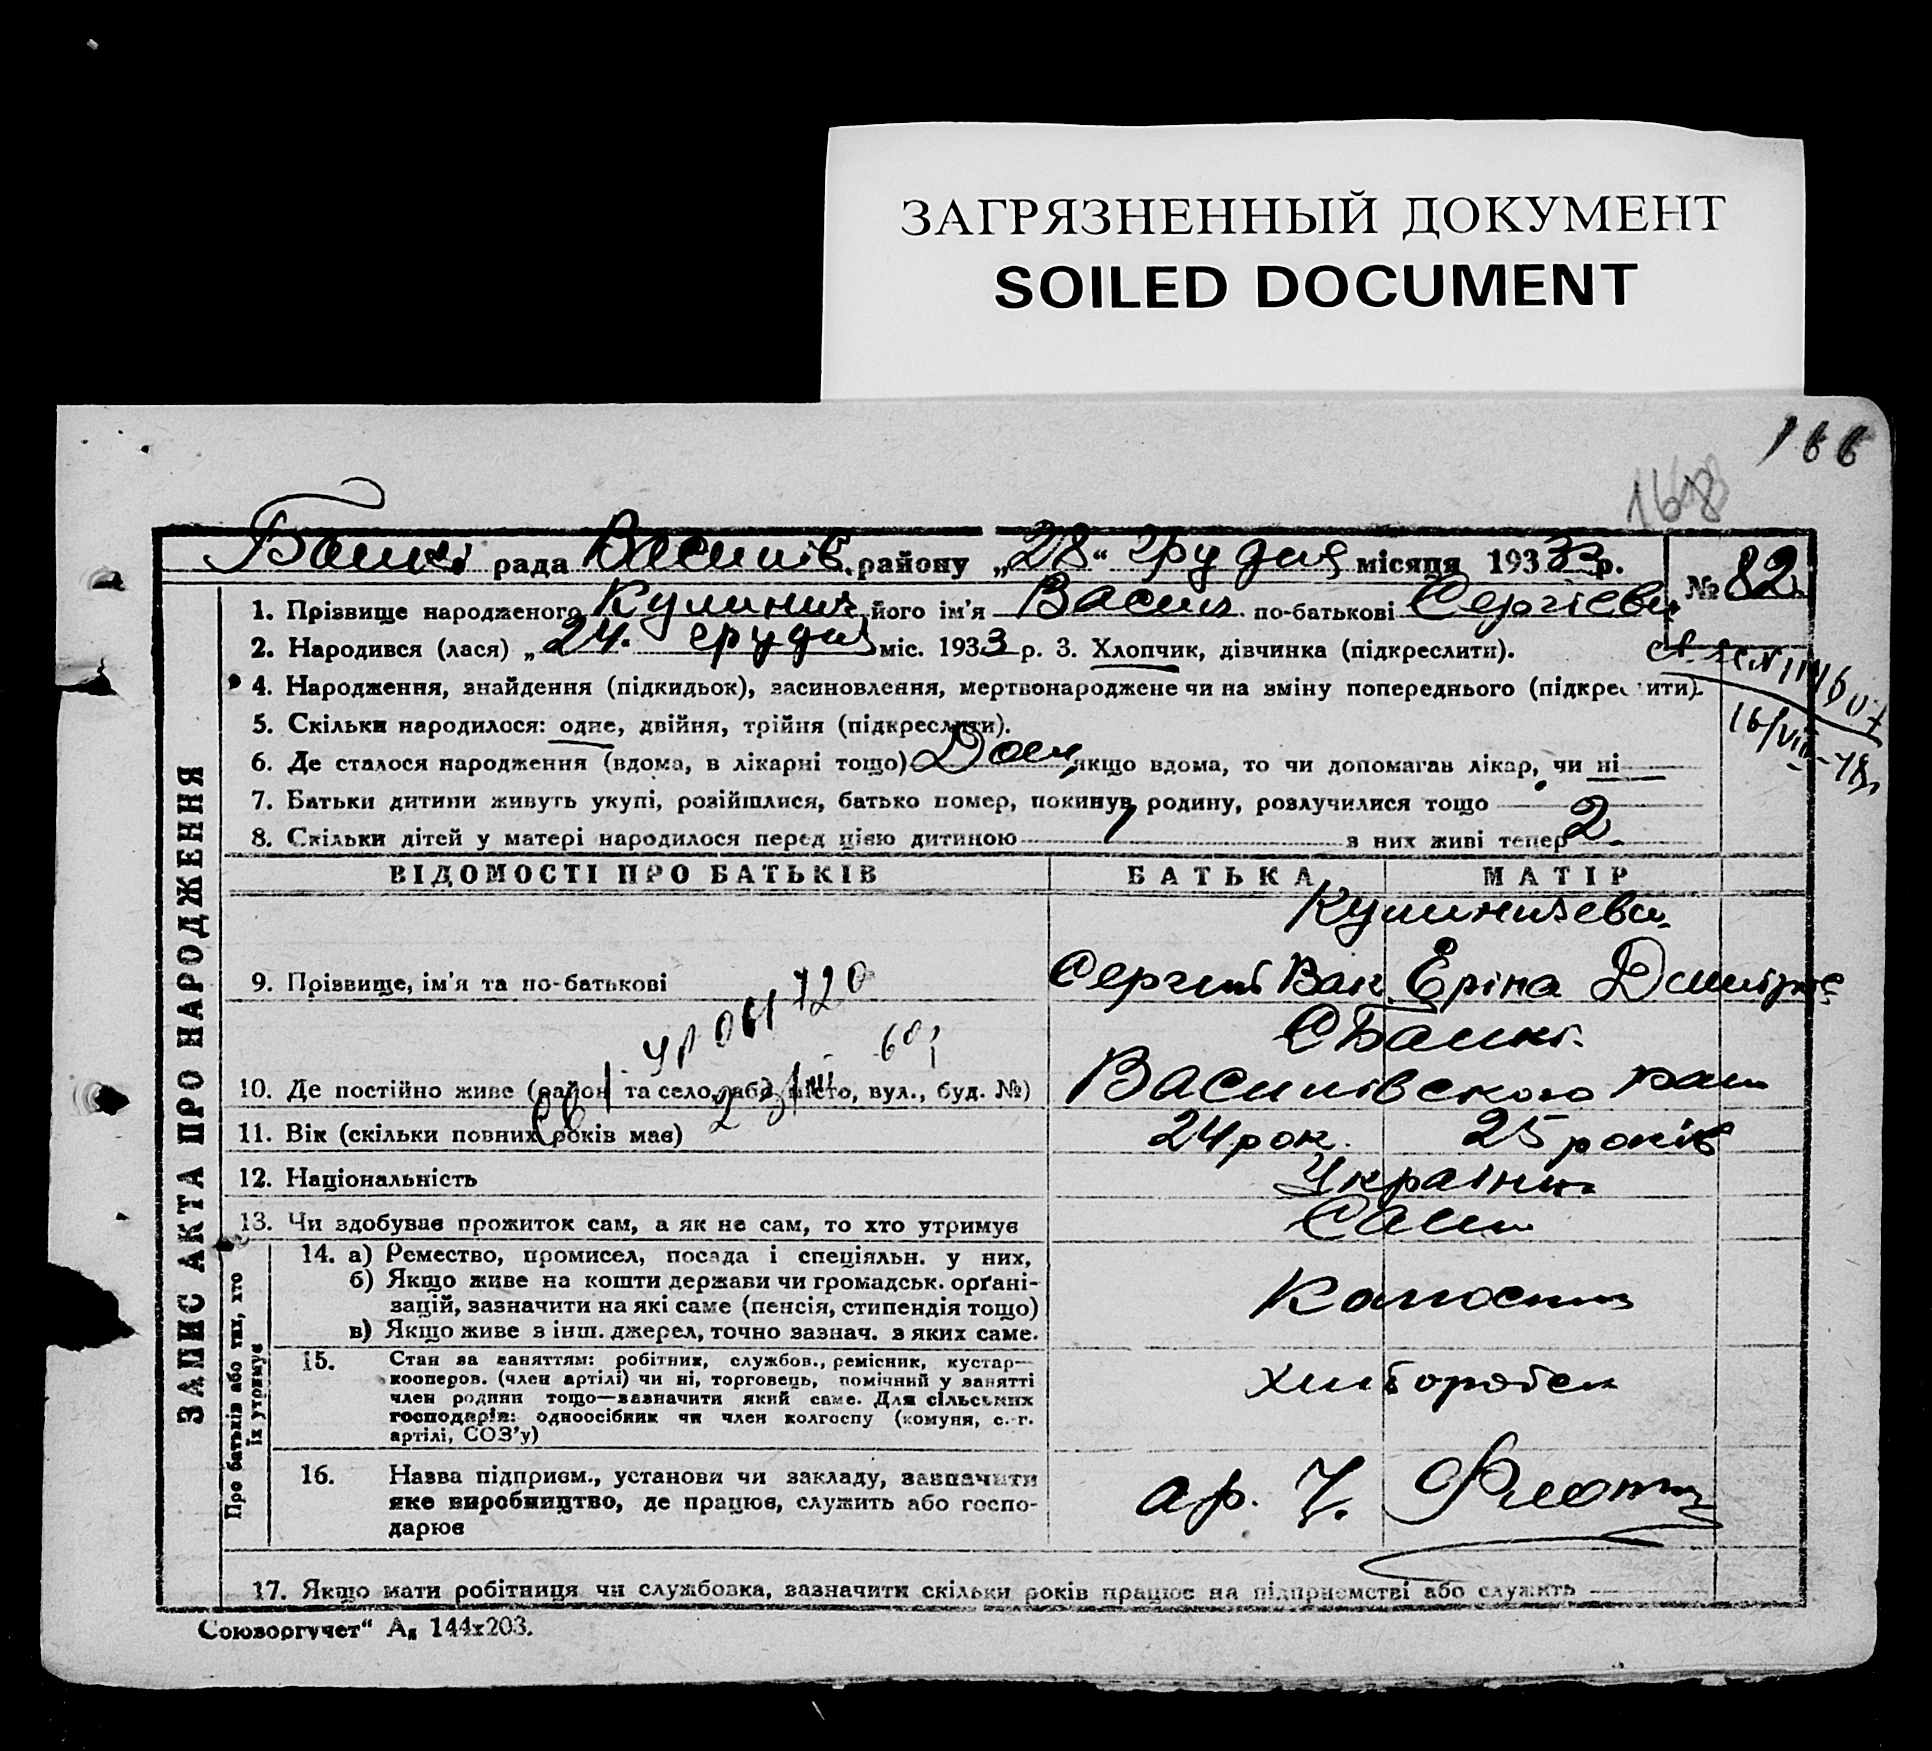 ЗАГРЯЗНЕННЫЙ ДОКУМЕНТ
SOILED DOCUMENT
166
рада Василів. району „28“ грудня місяця 1933 р. № 82
1. Прізвище народженого Кулинич його ім'я Василь по-батькові Сергієви
2. Народився (лася) „24. грудня міс. 1933 р. 3. Хлопчик, дівчинка (підкреслити).
4. Народження, знайдення (підкидьок), засиновлення, мертвонароджене чи на зміну попереднього (підкреслити).
5. Скільки народилося: одне, двійня, трійня (підкреслити).
6. Де сталося народження (вдома, в лікарні тощо) Дом якщо вдома, то чи допомагав лікар, чи ні
16/VIII-
7. Батьки дитини живуть укупі, розійшлися, батько помер, покинув родину, розлучилися тощо
8. Скільки дітей у матері народилося перед цією дитиною 1 з них живі тепер 2
ВІДОМОСТІ ПРО БАТЬКІВ БАТЬКА МАТІР
Кулиничеви
9. Прізвище, ім'я та по-батькові Сергий Ван Еріна Дмитрів
720
10. Де постійно живе (район та село, або місто, вул., буд. №) Василівского
11. Вік (скільки повних років має) 24 рок. 25 років
12. Національність Україн
13. Чи здобуває прожиток сам, а як не сам, то хто утримує Сами
14. а) Ремество, промисел, посада і спеціяльн. у них,
б) Якщо живе на кошти держави чи громадськ. орґані-
зацій, зазначити на які саме (пенсія, стипендія тощо)
в) Якщо живе з інш. джерел, точно зазнач. з яких саме.
15. Стан за заняттям: робітник, службов., ремісник, кустар—
кооперов. (член артілі) чи ні, торговець, помічний у занятті
член родини тощо—зазначити який саме. Для сільських
господарів: одноосібник чи член колгоспу (комуня, с.-г.
артілі, СОЗ'у)
хлібороби
16. Назва підприєм., установи чи закладу, зазначити
яке виробництво, де працює, служить або госпо-
дарює
ар. Ч. Флота
17. Якщо мати робітниця чи службовка, зазначити скільки років працює на підприємстві або служить
ЗАПИС АКТА ПРО НАРОДЖЕННЯ
Про батьків або тих, хто
їх утримує
Союзоргучет“ А₄ 144х203.